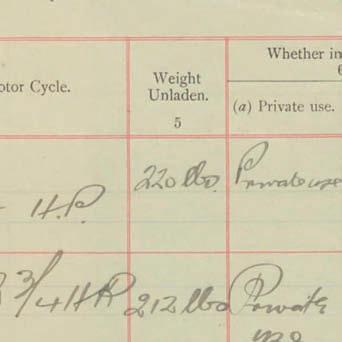 Whether in
6
otor Cycle.
Weight
Unladen.
5
(a) Private use.
220 lbs.
Private use
H.P.
3/4 H.P
212 lbs
Private
use